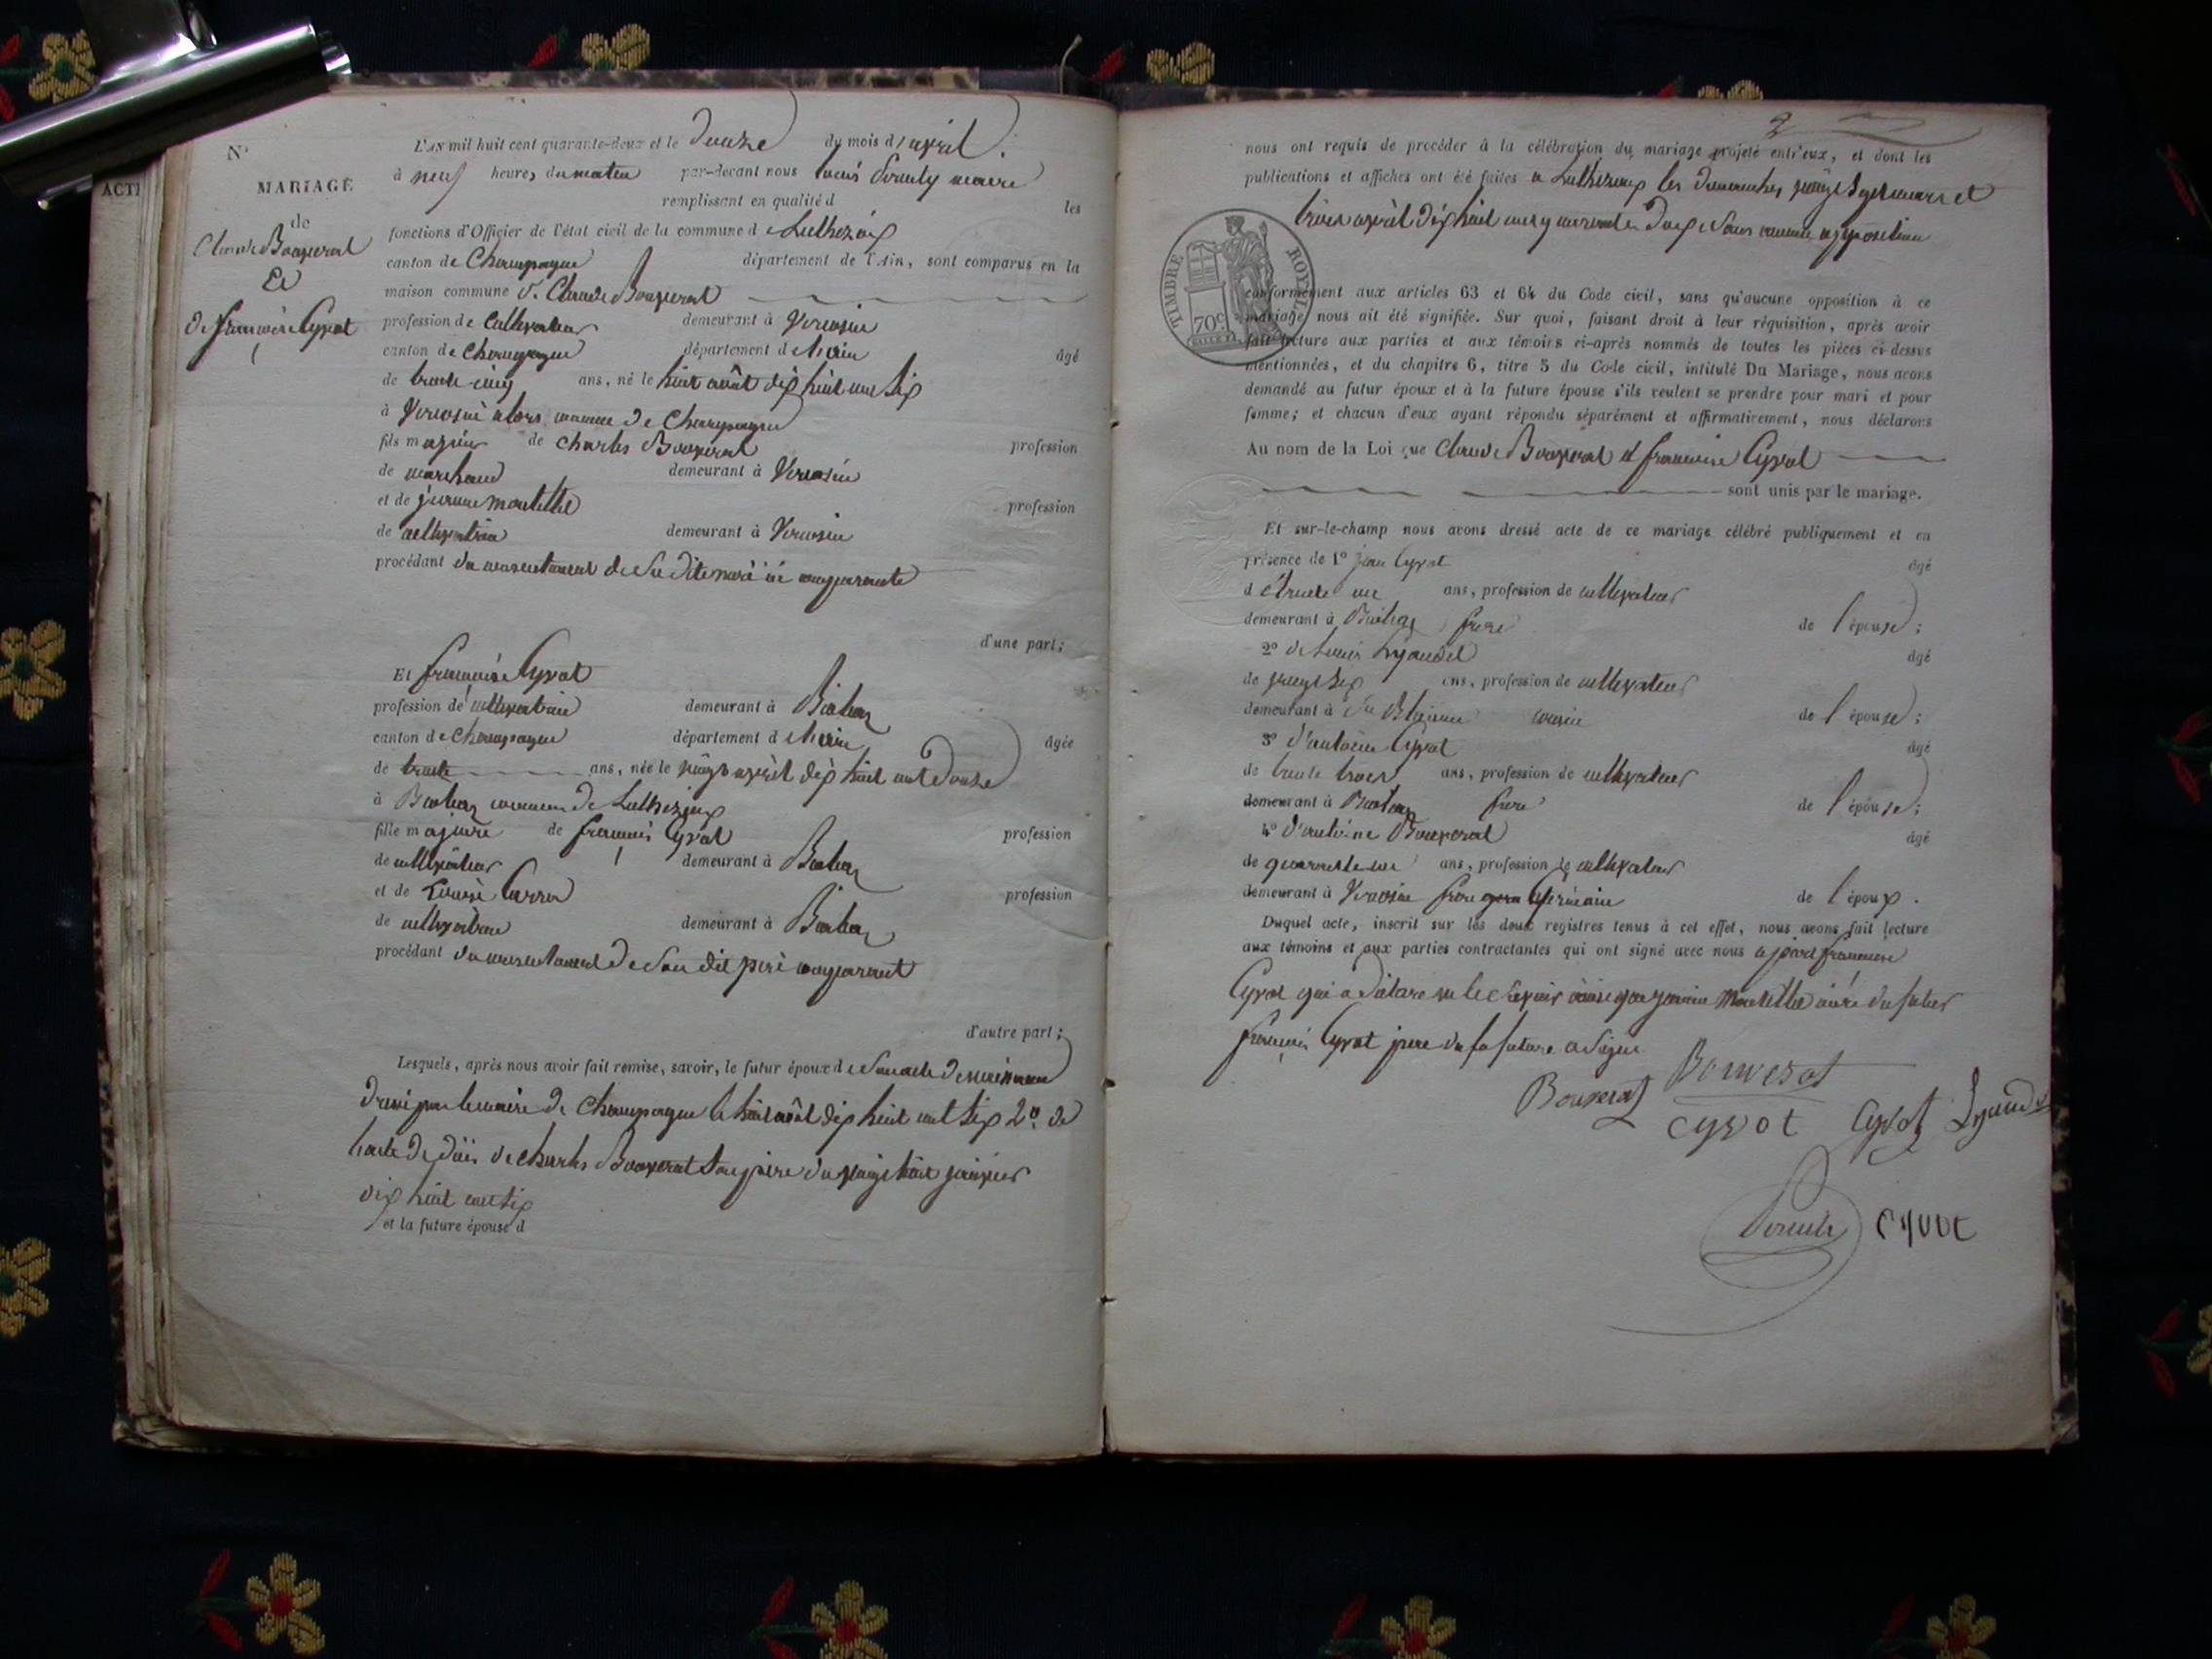 ACTE
N°
MARIAGE
de
Claude Bouverat
Et
de françoise Cyvot
L'AN mil huit cent quarante-deux et le Douze du mois d'avril
à neuf heures du matin par-devant nous maire
remplissant en qualité d les
fonctions d'Officier de l'état civil de la commune de Luthézieu
canton de Champagne département de l'Ain, sont comparus en la
maison commune Sr. Claude Bouverat
profession de Cultivateur demeurant à Virieu
canton de Champagne département de l'ain âgé
de trente cinq ans, né le huit août dix huit cent six
à alors commune de Champagne
fils majeur de Charles Bouverat profession
de marchand demeurant à
et de profession
de cultivatrice demeurant à
procédant du consentement de sa dite mère ici comparante
d'une part;
Et françoise Cyvot
profession de cultivatrice demeurant à Bioléaz
canton de Champagne département de l'ain âgée
de trente ans, née le avril dix huit cent Douze
à Bioléaz commune de Luthézieu
fille majeure de françois Cyvot profession
de cultivateur demeurant à Bioléaz
et de Louise Carron profession
de cultivatrice demeurant à Bioléaz
procédant du consentement de son dit père comparant
d'autre part;
Lesquels, après nous avoir fait remise, savoir, le futur époux de son acte de naissance
Dressé par le maire de Champagne le huit août dix huit cent six 2° de
l'acte de décès de Charles Bouverat son père du vingt huit janvier
dix huit cent six
et la future épouse d
2
nous ont requis de procéder à la célébration du mariage projeté entr'eux, et dont les
publications et affiches ont été faites à Luthézieu les dimanches vingt sept mars et
trois avril dix huit cent quarante Deux sans aucune opposition
TIMBRE ROYAL
70c
conformément aux articles 63 et 64 du Code civil, sans qu'aucune opposition à ce
mariage nous ait été signifiée. Sur quoi, faisant droit à leur réquisition, après avoir
fait lecture aux parties et aux témoins ci-après nommés de toutes les pièces ci-dessus
mentionnées, et du chapitre 6, titre 5 du Code civil, intitulé Du Mariage, nous avons
demandé au futur époux et à la future épouse s'ils veulent se prendre pour mari et pour
femme; et chacun d'eux ayant répondu séparément et affirmativement, nous déclarons
Au nom de la Loi que Claude Bouverat et françoise Cyvot
sont unis par le mariage.
Et sur-le-champ nous avons dressé acte de ce mariage célébré publiquement et en
présence de 1° jean Cyvot âgé
de trente un ans, profession de cultivateur
demeurant à Bioléaz frere de l'épouse;
2° de Louis âgé
de vingt six ans, profession de cultivateur
demeurant à cousin de l'épouse;
3° d'antoine Cyvot âgé
de trente trois ans, profession de cultivateur
demeurant à Bioléaz frere de l'épouse;
4° d'antoine Bouverat âgé
de quarante un ans, profession de cultivateur
demeurant à frere germain de l'époux.
Duquel acte, inscrit sur les doux registres tenus à cet effet, nous avons fait lecture
aux témoins et aux parties contractantes qui ont signé avec nous à part françoise
Cyvot qui a déclaré ne le savoir ainsi que mère du futur
françois Cyvot père de la future a signé
Bouverat Bouverat
cyvot Cyvot
cyvot